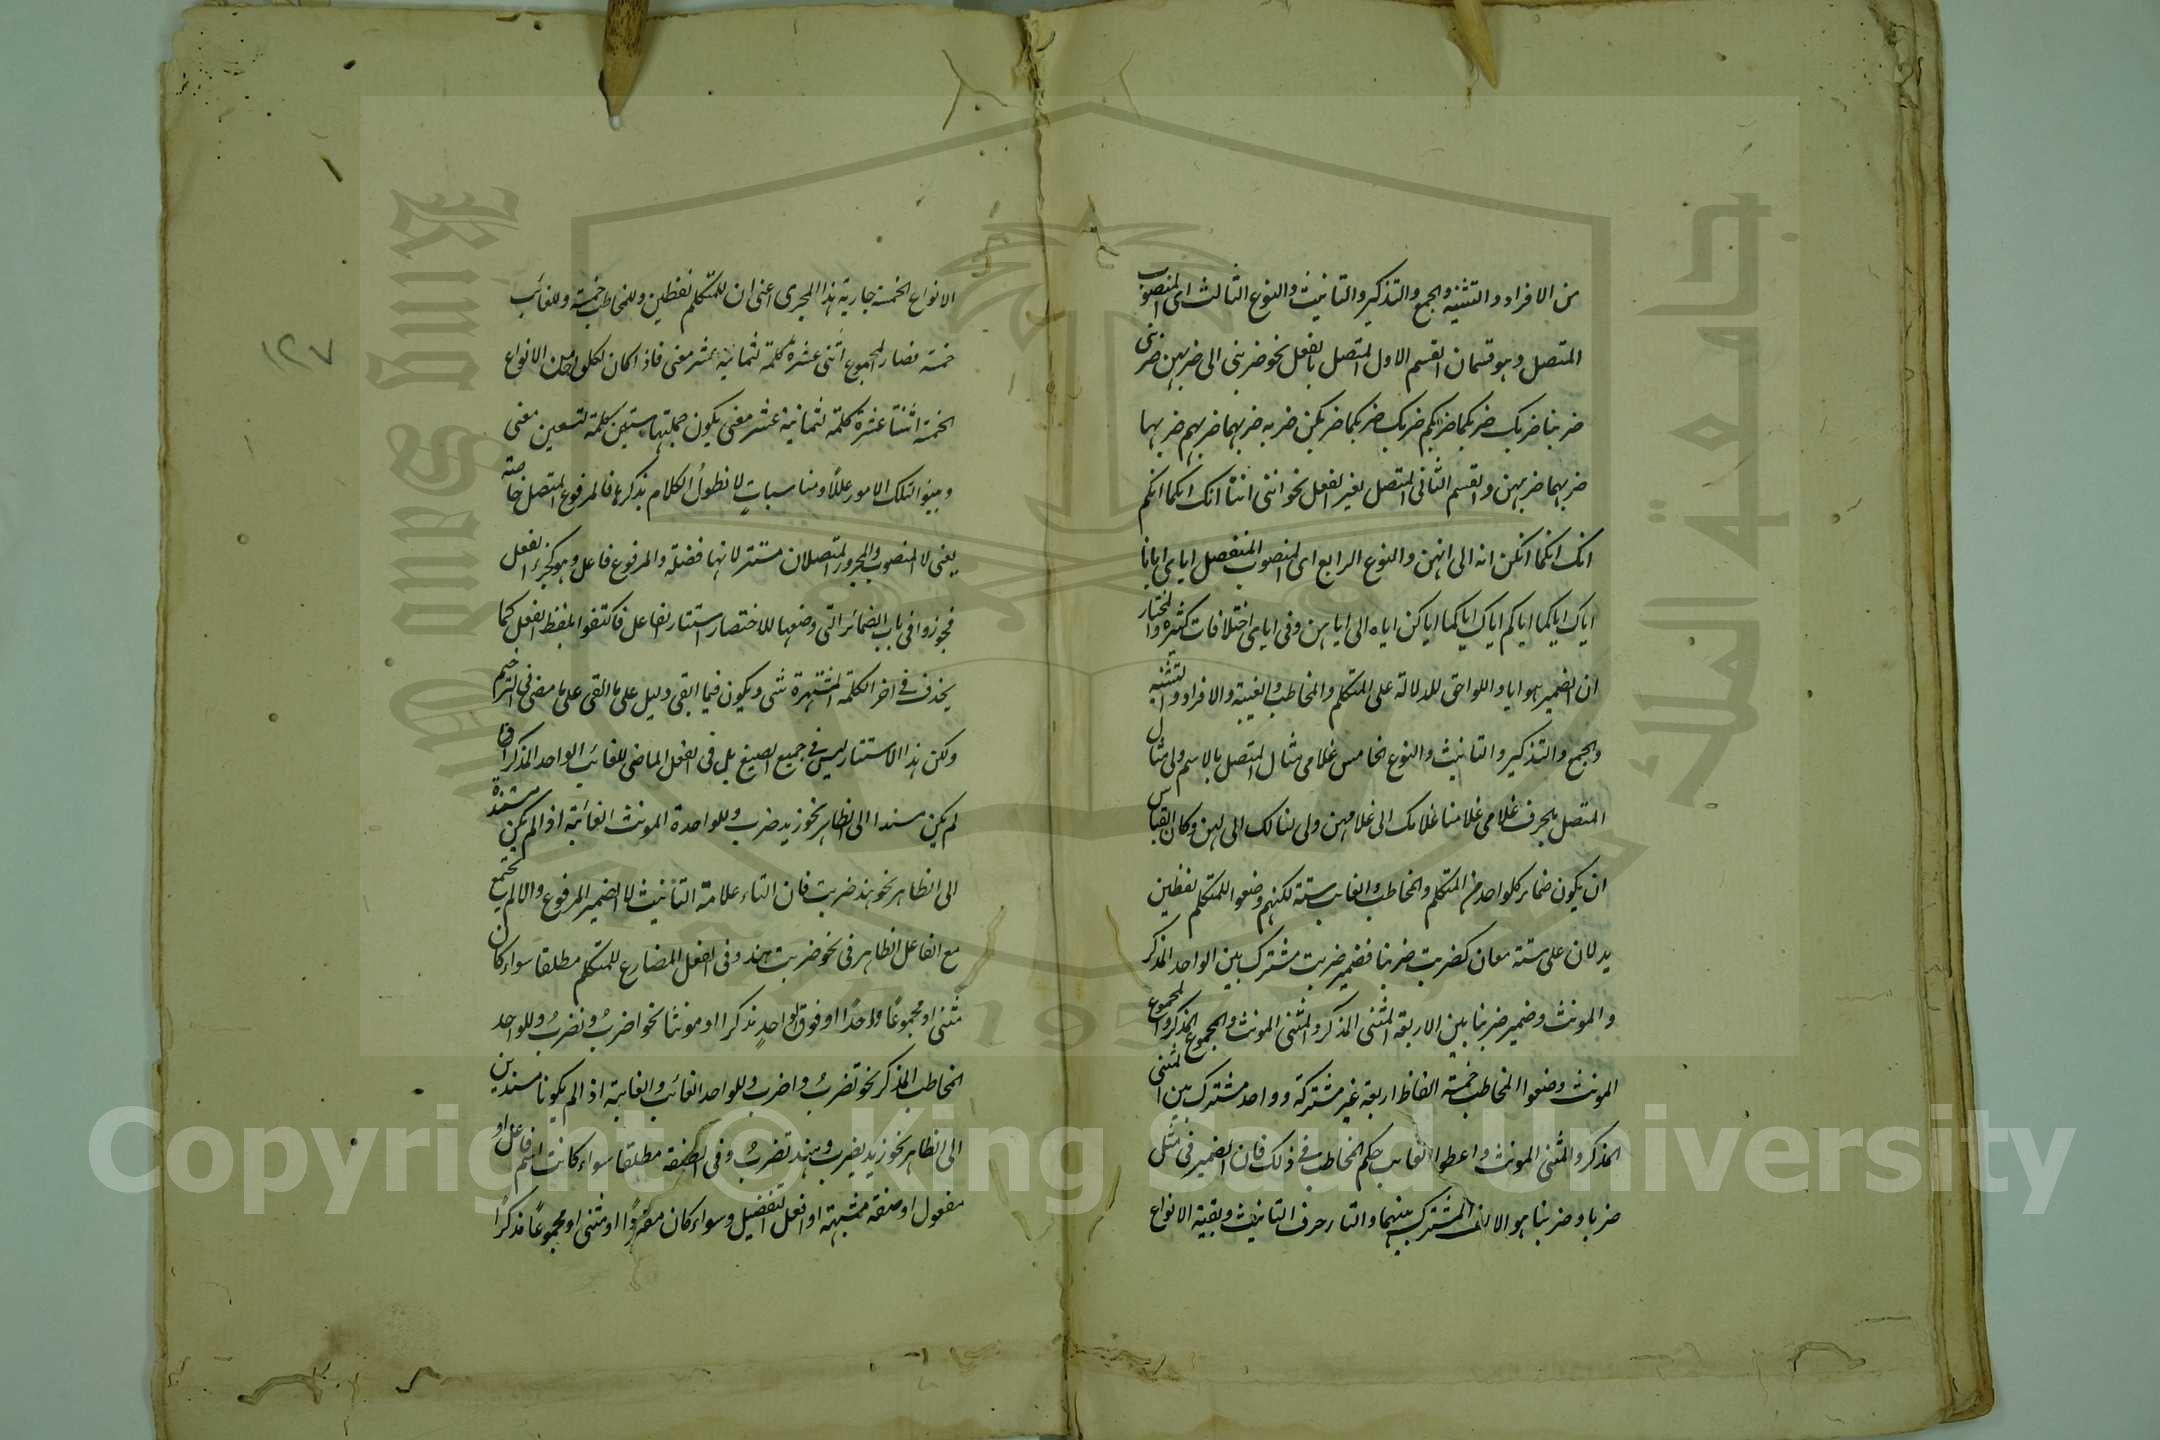 من الافراد والتثنيه والجمع والتذكير والتانيث والنوع الثالث اى المنصوب
المتصل وهو قسمان القسم الاول المتصل بالفعل نحو ضربنى الى ضربهن ضربنى
ضربنا ضربك ضربكما ضربكم ضربك ضربكما ضربكن ضربه ضربهما ضربهم ضربها
ضربهما ضربهن والقسم الثانى المتصل بغير الفعل نحو اننى اننا انك انكما انكم
انك انكما انكن انه الى انهن والنوع الرابع اى المنصوب المنفصل اياى ايانا
اياك اياكما اياكم اياك اياكما اياكن اياه الى اياهن وفى اياى اختلافات كثيره والمختار
ان الضمير هو ايا واللواحق للدلالة على المتكلم والمخاطب والغيبة والافراد والتثنيه
والجمع والتذكير والتانيث والنوع الخامس غلامى مثال المتصل بالاسم ولى مثال
المتصل بالحرف غلامى غلامنا غلامك الى غلامهن ولى لنا لك الى لهن وكان القياس
ان يكون ضمائر كلواحد من المتكلم والمخاطب والغايب ستة لكنهم وضعوا للمتكلم لفظين
يدلان على ستة معان كضربت ضربنا فضمير ضربت مشترك بين الواحد المذكر
والمونث وضمير ضربنا بين الاربعة المثنى المذكر والمثنى المونث والمجموع المذكر والمجموع
المونث وضعوا المخاطب خمسة الفاظ اربعة غير مشتركة وواحد مشترك بين المثنى
المذكر والمثنى المونث واعطوا الغايب حكم المخاطب فى ذلك فان الضمير فى مثل
ضربا وضربتا هو الالف المشترك بينهما والتا حرف التانيث وبقية الانواع
الانواع الخمسة جارية هذا المجرى اعنى ان للمتكلم لفظين وللمخاطب خمسة وللغائب
خمسة فصار المجموع اثنى عشرة كلمة لثمانية عشر معنى فاذا كان لكلواحد من الانواع
الخمسة اثنتا عشرة كلمة لثمانية عشر معنى يكون جملتها ستين كلمة لتسعين معنى
وبينوا لتلك الامور عللاً ومناسباتٍ لا نطولُ الكلام بذكرها فالمرفوع المتصل خاصة
يعنى لا المنصوب والمجرور المتصلان مستتر لانها فضلة والمرفوع فاعل وهو كجزء الفعل
فجوزوا فى باب الضمائر التى وضعها للاختصار استتار الفاعل فاكتفوا بلفظ الفعل كما
يحذف فى اخر الكلمة المشتهرة شى ويكون فيما ابقى دليل على ما القى على ما مضى فى الترخيم
ولكن هذا الاستتار ليس فى جميع الصيغ بل فى الفعل الماضى للغائب الواحد المذكر اذا
لم يكن مسندا الى الظاهر نحو زيد ضرب وللواحدة المونث الغائبة اذا لم يكن مسندة
الى الظاهر نحو هند ضربت فان التاء علامة التأنيث لا الضمير المرفوع والا لم يجتمع
مع الفاعل الظاهر فى نحو ضربت هند وفى الفعل المضارع للمتكلم مطلقا سواء كان
مثنى او مجموعًا واحدًا او فوق الواحدٍ مذكرا او مونثا نحو اضربُ ونضربُ وللواحد
المخاطب المذكر نحو تضربُ واضرب وللواحد الغائب والغايبة اذا لم يكونا مسندين
الى الظاهر نحو زيد يضرب وهند تضربُ وفى الصفة مطلقا سواء كانت اسم فاعل او
مفعول او صفة مشبهة او افعل التفضيل وسواء كان مفردًا او مثنى او مجموعًا مذكرًا
١٢٧
King Saud University
جامعة الملك
1957
Copyright © King Saud University